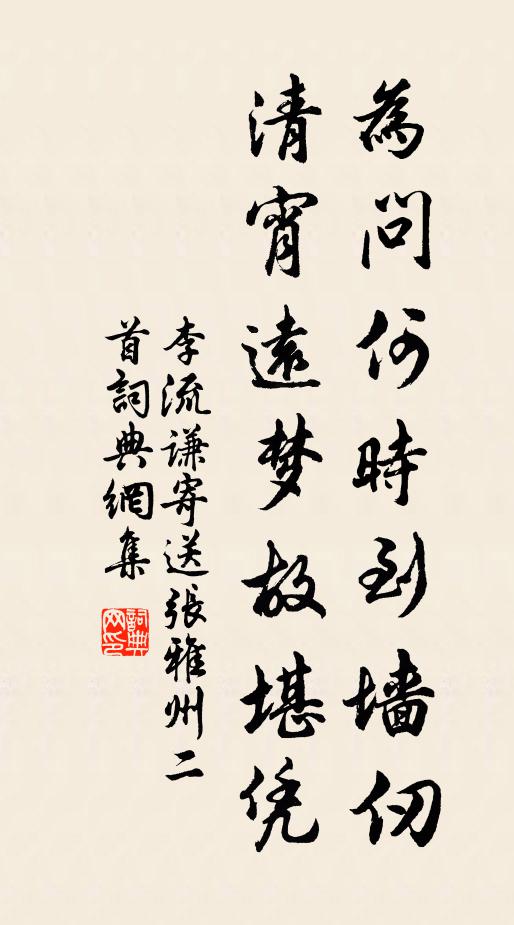 為問何時到墙仞
清宵遠梦故堪凭
李流谦寄送張雅州二
首詞典網集
詞典
网印